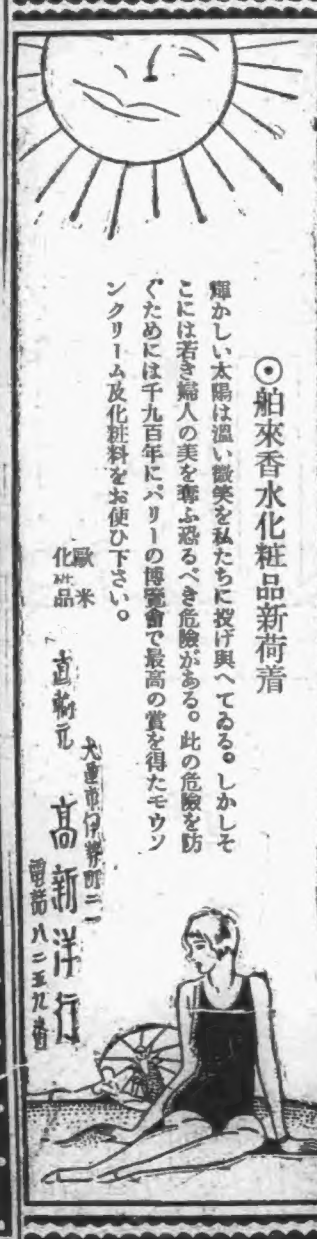 ◉舶來香水化粧品新荷着
輝かしい太陽は溫い微笑を私たちに投げ與へてゐる。しかしそ
こには若き婦人の美を奪ふ恐るべき危險がある。此の危險を防
ぐためには千九百年にパリーの博覽會で最高の賞を得たモウソ
ンクリーム及化粧料をお使ひ下さい。
歐米
化粧品
直輸元
大連市伊勢町二一
高新洋行
電話八二五九番